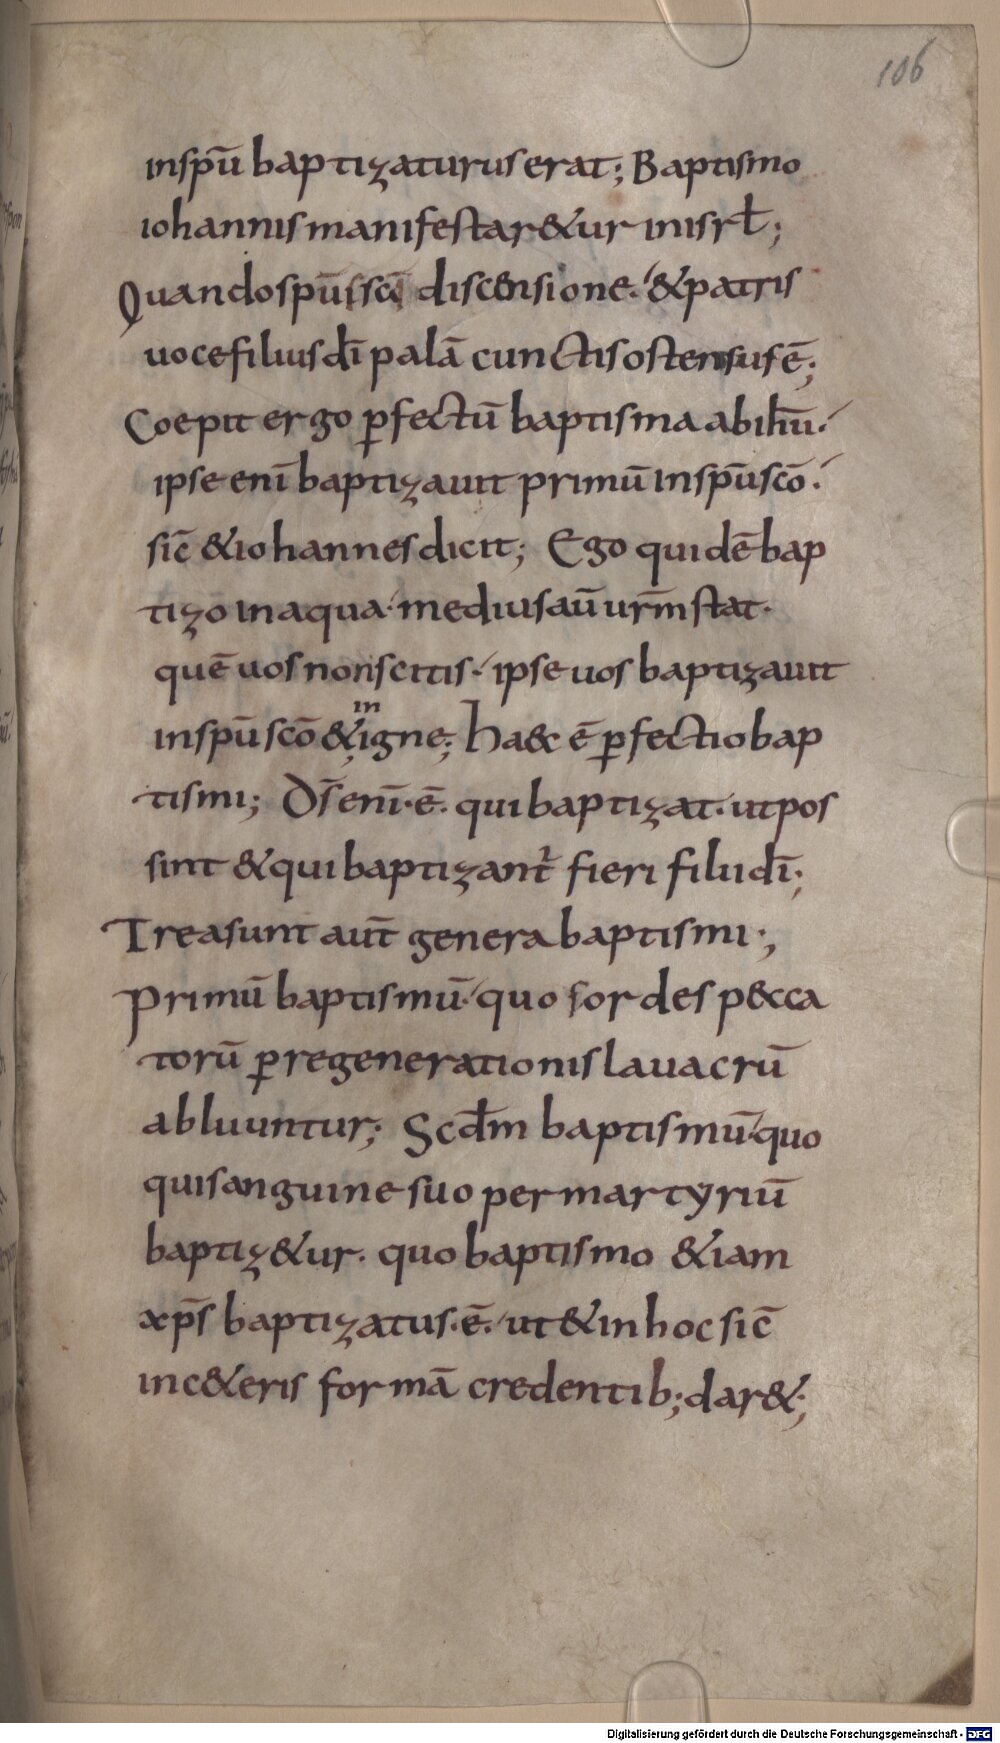 106
inspū baptizaturus erat; Baptismo
iohannis manifestar&ur in isrł;
Quando spūs sci discensione. &patris
uoce filius dī palā cunctis ostensus ē;
Coepit ergo ꝑfectū baptisma ab ihū.
ipse enī baptizauit primū in spū scō.
sic̄ & iohannes dicit; Ego quidē bap
tizo in aqua. medius aū urm̄ stat.
quē uos nonscitis. ipse uos baptizauit
in spū scō & in igne; ha&c ē ꝑfectio bap
tismi; Ds̄ enī. ē. qui baptizat. ut pos
sint & qui baptizant̄ fieri filii dī;
Trea sunt aut̄ genera baptismi;
Primū baptismū. quo sordes p&cca
torū ꝑ regenerationis lauacrū
abluuntur; Scdm̄ baptismū. quo
qui sanguine suo per martyriū
baptiz&ur. quo baptismo &iam
xp̄s baptizatus. ē. ut & in hoc sic̄
in c&eris formā credentib; dar&;
Digitalisierung gefördert durch die Deutsche Forschungsgemeinschaft - DFG